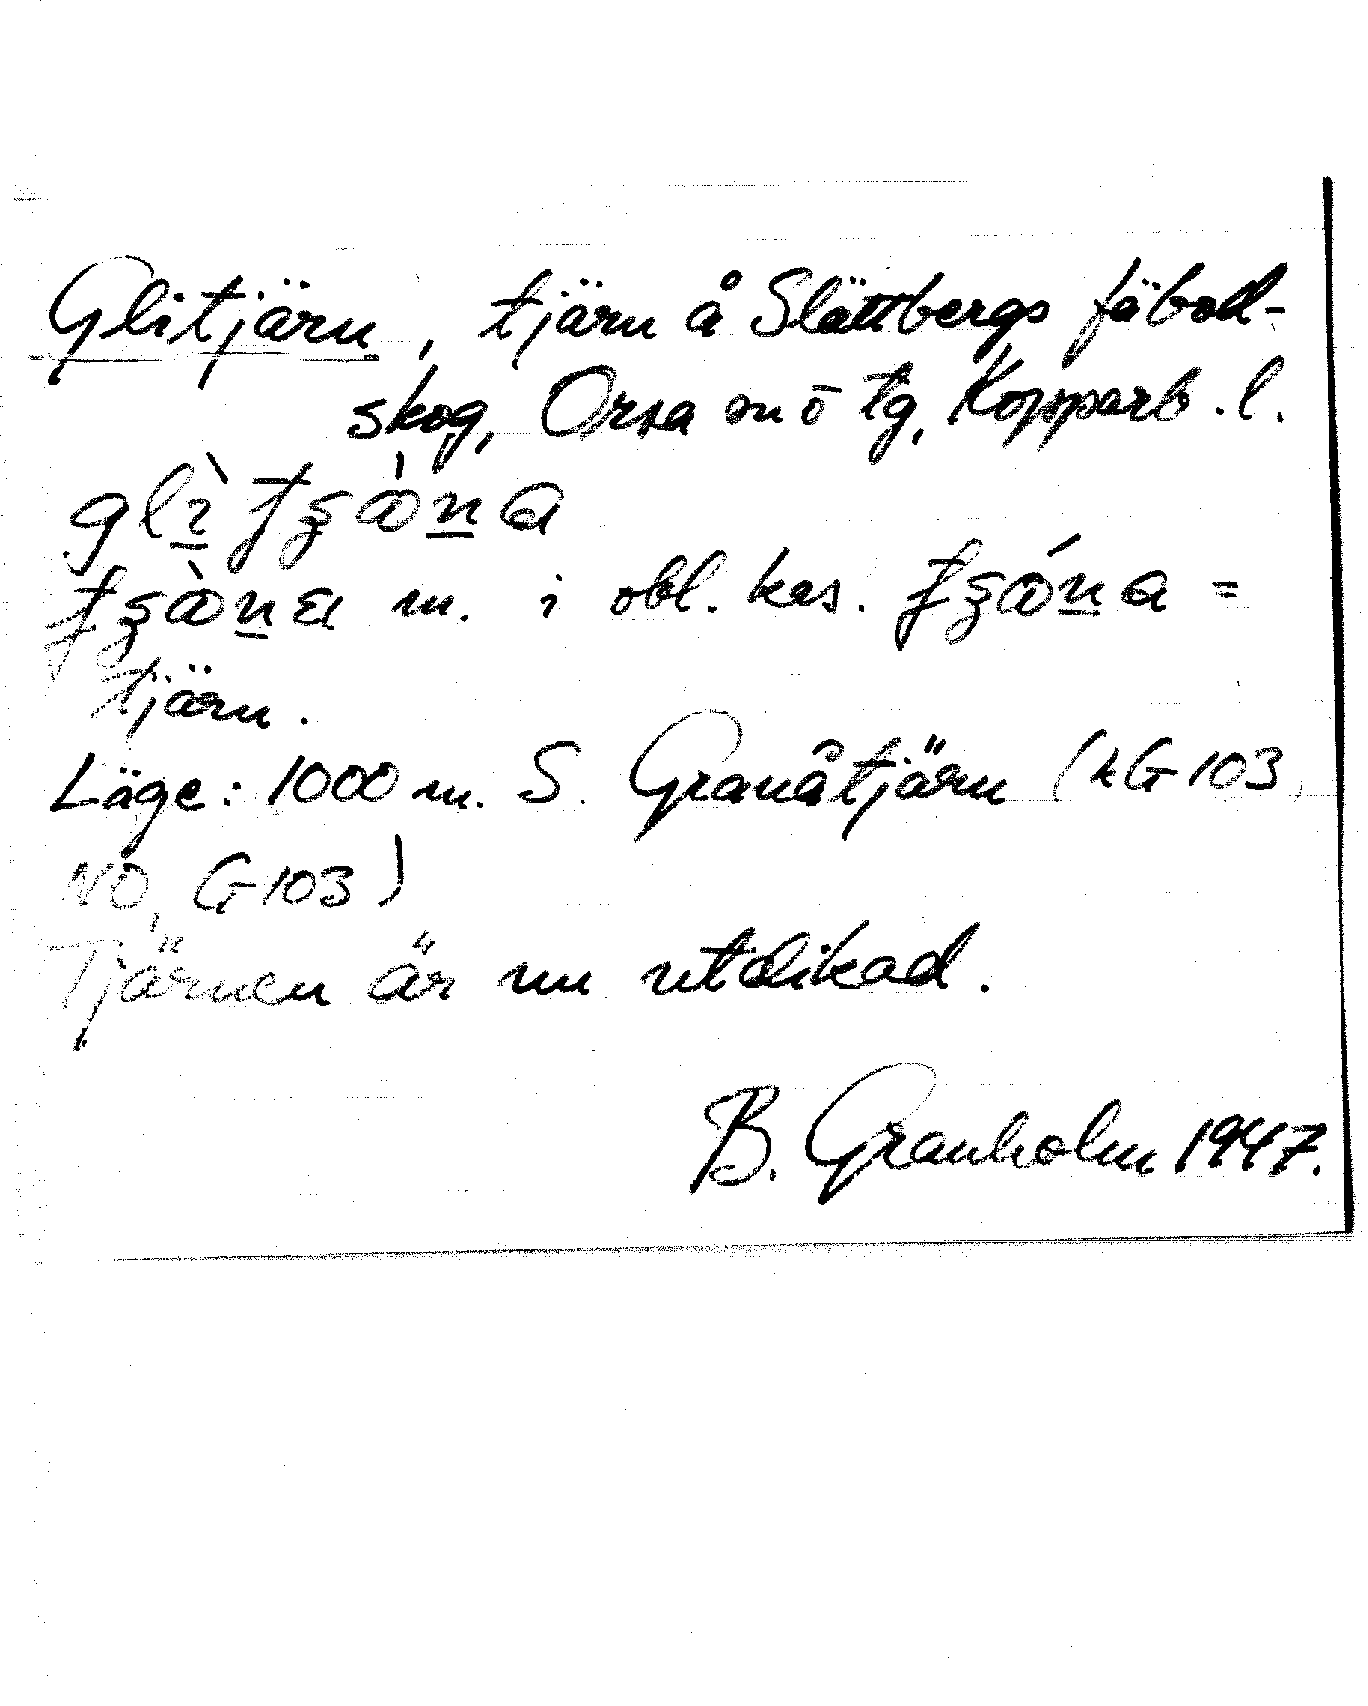 Glitjärn, tjärn å Slättbergs fäbod-
skog, Orsa sn o tg, Kopparb. l.
m. i obl. kas. =
tjärn.
Läge: 1000 m. S. Granåtjärn (kG 103
NO, G 103)
Tjärnen är nu utdikad.
B. Granholm 1947.